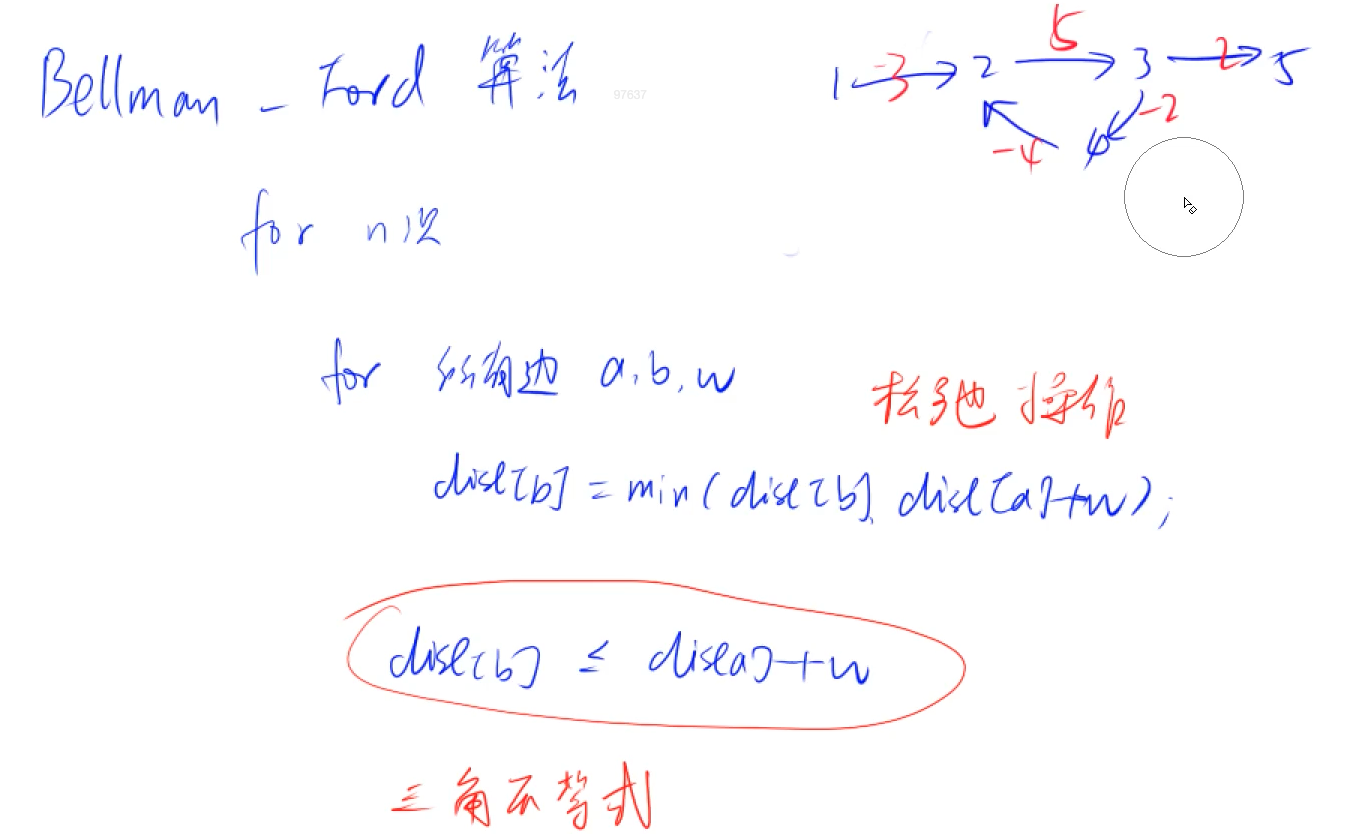 Bellman - Ford 算法
97637
1 -3 2 5 3 2 5
-4 4 -2
for n次
for 所有边 a,b,w
松弛操作
dist[b] = min(dist[b], dist[a]+w);
dist[b] ≤ dist[a]+w
三角不等式